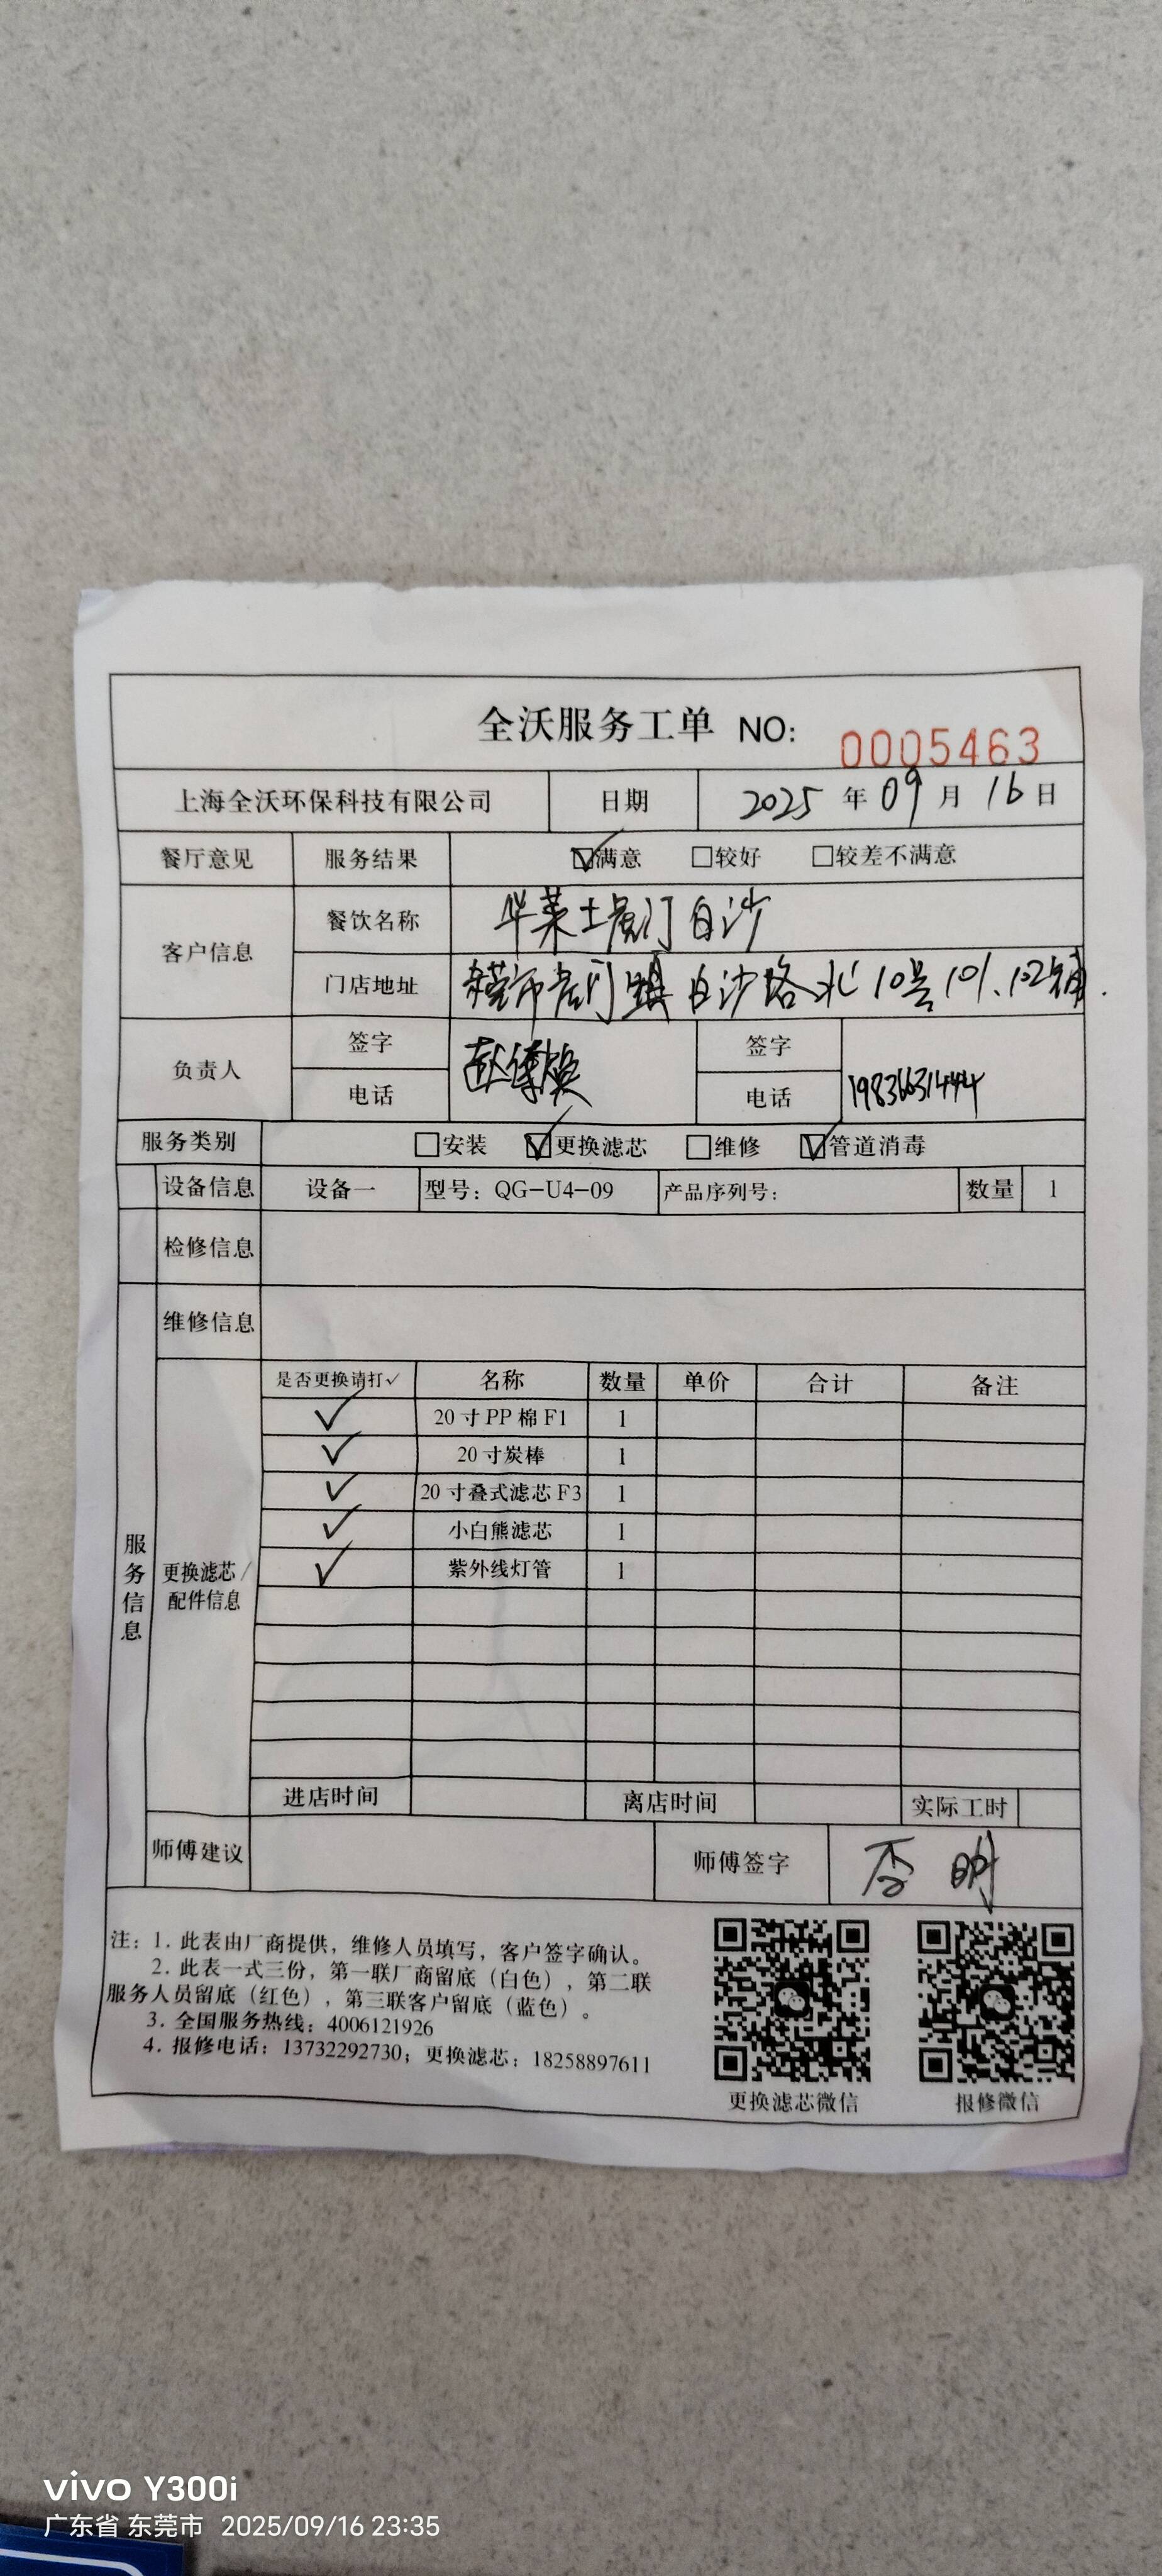 全沃服务工单 NO: 0005463
上海全沃环保科技有限公司 日期 2025 年 09 月 16 日
餐厅意见 服务结果 ☑满意 □较好 □较差不满意
客户信息 餐饮名称 华莱士虎门白沙
门店地址 东莞市虎门镇白沙路北10号101、102铺.
负责人 签字 签字
电话 电话 19836631444
服务类别 □安装 ☑更换滤芯 □维修 ☑管道消毒
设备信息 设备一 型号：QG-U4-09 产品序列号： 数量 1
检修信息
维修信息
服务信息
更换滤芯/配件信息
是否更换请打✓ 名称 数量 单价 合计 备注
✓ 20寸PP棉F1 1
✓ 20寸炭棒 1
✓ 20寸叠式滤芯F3 1
✓ 小白熊滤芯 1
✓ 紫外线灯管 1
进店时间 离店时间 实际工时
师傅建议 师傅签字 明
注：1. 此表由厂商提供，维修人员填写，客户签字确认。
2. 此表一式三份，第一联厂商留底（白色），第二联
服务人员留底（红色），第三联客户留底（蓝色）。
3. 全国服务热线：4006121926
4. 报修电话：13732292730；更换滤芯：18258897611
更换滤芯微信 报修微信
vivo Y300i
广东省 东莞市 2025/09/16 23:35